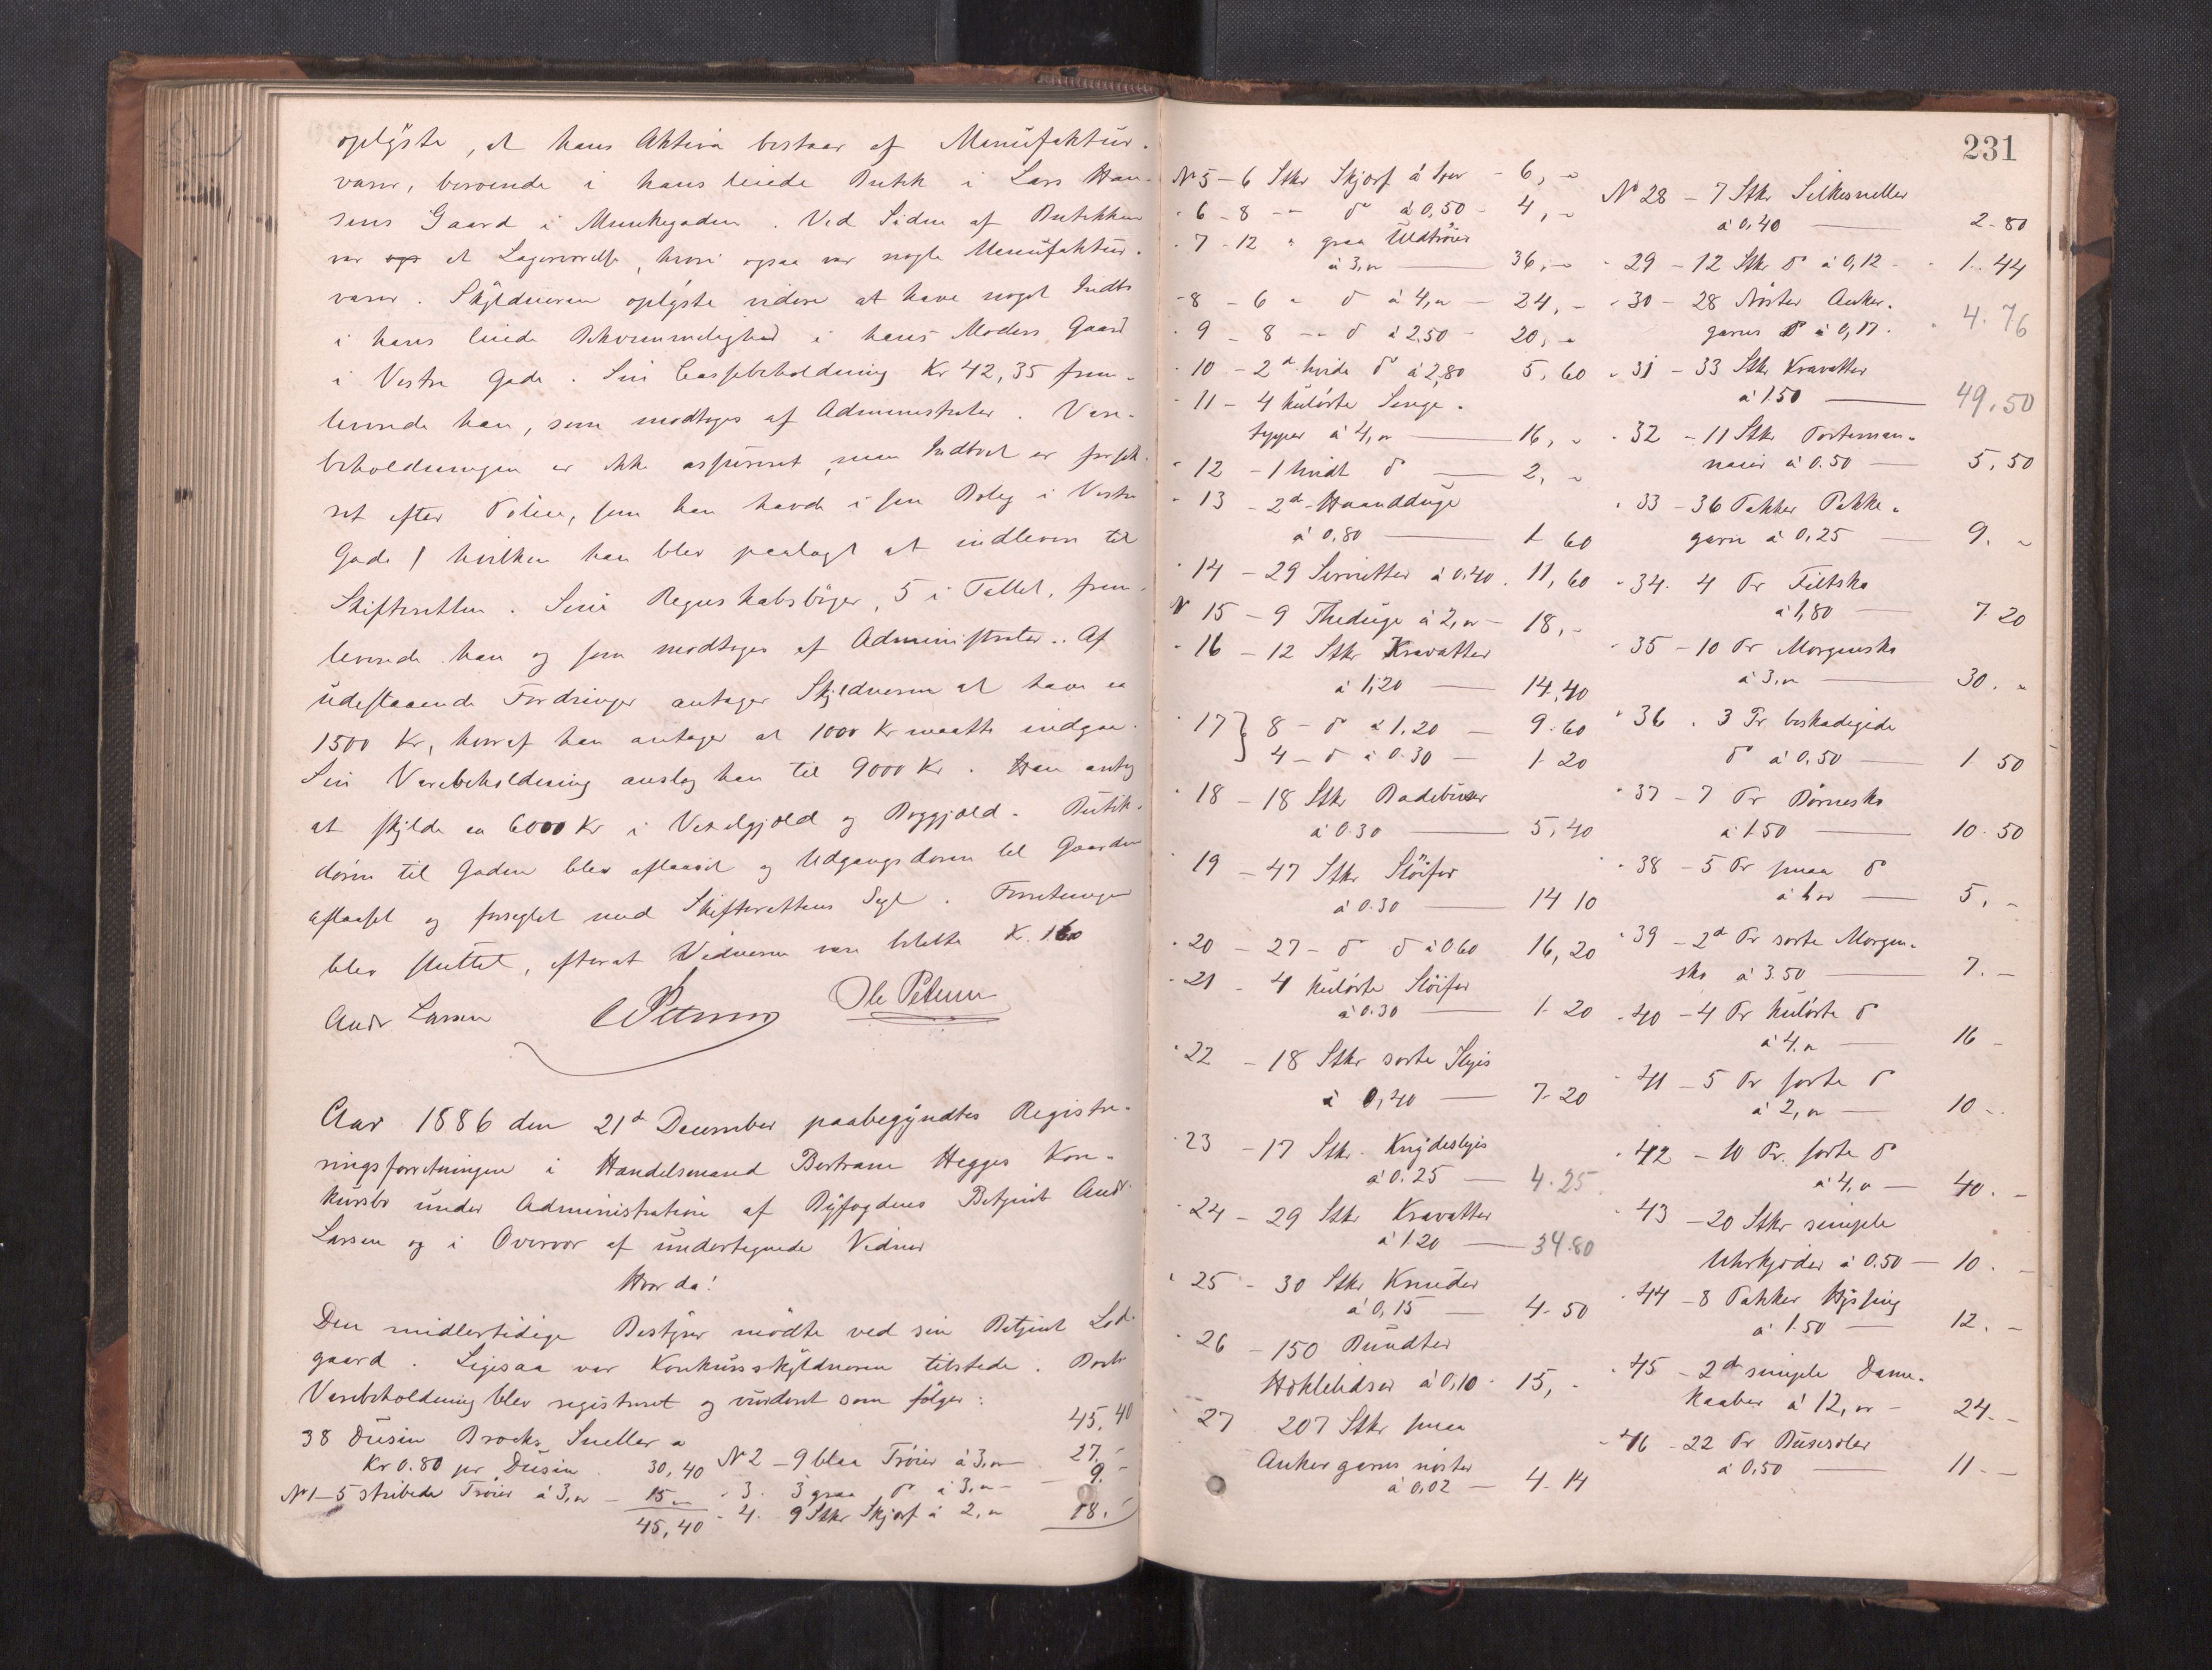 oplyste, at hans Aktiva bestaar af Manufaktur-
varer, beroende i hans leiede Butik i Lars Han-
sens Gaard i Munkegaden. Ved Siden af Butikken
var et Lagerværelse, hvori ogsaa var nogle Manufaktur-
varer. Skyldneren oplyste videre at have noget Indbo
i hans leiede Bekvemmelighed i hans Moders Gaard
i Vestre Gade. Sin Cassebeholdning Kr 42,35 frem-
leverede han, som modtoges af Administrator. Vare-
beholdningen er ikke assureret, men Indboet er forsik-
ret efter Police, som han havde i sin Bolig i Vestre
Gade / hvilken han blev paalagt at indlevere til
Skifteretten. Sine Regnskabsbøger, 5 i Tallet, frem-
leverede han og som modtoges af Administrator. Af
udestaaende Fordringer antager Skyldneren at have ca
1500 Kr, hvoraf han antager at 1000 Kr maatte indgaa.
Sin Varebeholdning anslog han til 9000 Kr. Han antog
at skylde ca 6000 Kr i Vexelgjæld og Boggjæld. Butik-
døren til Gaden blev aflaaset og Udgangsdøren til Gaarden
aflaaset og forseglet med Skifterettens Segl. Forretningen
blev sluttet, efterat Vidnerne vare betalte K. 1.60
Andr Larsen Ole Petersen
Aar 1886 den 21de December paabegyndtes Registre-
ringsforretningen i Handelsmand Bertram Hegges Kon-
kursbo under Administration af Byfogdens Betjent Andr.
Larsen og i Overvær af undertegnede Vidner
Hvor da!
Den midlertidige Bestyrer mødte ved sin Betjent Lod-
gaard. Ligesaa var Konkursskyldneren tilstede. Boets
Varebeholdning blev registreret og vurderet som følger:
38 Dusin Brocks Sneller a
Kr 0.80 pr Dusin 30,40
No 1 – 5 stribede Trøier á 3,00 – 15 "
45,40
45,40
No 2 – 9 blaa Trøier á 3,00 27,–
" 3. 3 graa do á 3,00 – 9.–
" 4. 9 Stkr Skjørt á 2,00 18.–
231
No 5 – 6 Stkr Skjørt á 1,00 – 6, "
" 6 – 8 – " do á 0,50 – 4, "
" 7 – 12 " graa Uldtrøier
á 3,00 — 36, "
" 8 – 6 " do á 4,00 – 24, –
" 9 – 8 – " do á 2.50 – 20, "
" 10 – 2de hvide do á 2,80 5,60
" 11 – 4 kulørte Senge-
tepper á 4,00 — 16, "
" 12 – 1 hvidt do — 2, "
" 13 – 2de Haandduge
á 0,80 — 1 60
" 14 – 29 Servietter á 0.40. 11,60
No 15 – 9 Theduge á 2,00 – 18,–
" 16 – 12 Stkr Kravatter
á 1,20 — 14,40
" 17 } 8 – do á 1,20 — 9.60
4 – do á 0.30 — 1. 20
" 18 – 18 Stkr Badebuxer
á 0.30 — 5,40
" 19 – 47 Stkr Sløifer
á 0.30 — 14 10
" 20 – 27 – do do á 0.60 16,20
" 21 – 4 kulørte Sløifer
á 0.30 — 1. 20
" 22 – 18 Stkr sorte Slips
á 0,40 — 7. 20
" 23 – 17 Stkr. Knydeslips
á 0.25 — 4.25
" 24 – 29 Stkr Kravatter
á 1.20 — 34.80
" 25 – 30 Stkr Knuder
á 0,15 — 4. 50
" 26 – 150 Bundter
Heklelidser á 0,10 – 15, –
" 27 207 Stkr smaa
Ankergarns nøster
á 0,02 — 4. 14
No 28 – 7 Stkr Silkesneller
á 0,40 — 2. 80
" 29 – 12 Stkr do á 0,12 – 1. 44
" 30 – 28 Nøster Anker-
garns do á 0,17. 4.76
" 31 – 33 Stkr Kravatter
á 1.50 — 49.50
" 32 – 11 Stkr Portemon-
naier á 0.50 — 5,50
" 33 – 36 Pakker Pakke-
garn á 0,25 — 9. "
" 34. 4 Pr Filtsko
á 1,80 — 7. 20
" 35 – 10 Pr Morgensko
á 3,00 — 30. "
" 36. 3 Pr beskadigede
do á 0,50 — 1 50
" 37 – 7 Pr Børnesko
á 1.50 — 10. 50
" 38 – 5 Pr smaa do
á 1,00 — 5, –
" 39 – 2de Pr sorte Morgen-
sko á 3.50 — 7. –
" 40 – 4 Pr kulørte do
á 4,00 — 16 –
" 41 – 5 Pr sorte do
á 2,00 — 10 –
" 42 – 10 Pr. sorte do
á 4,00 — 40. –
" 43 – 20 Stkr simple
Uhrkjæder á 0.50 — 10. –
" 44 – 8 Pakker Hyssing
á 1.50 — 12. –
" 45 – 2de simple Dame-
kaaber á 12,00 – 24. –
" 46 – 22 Pr
á 0,50 — 11. –